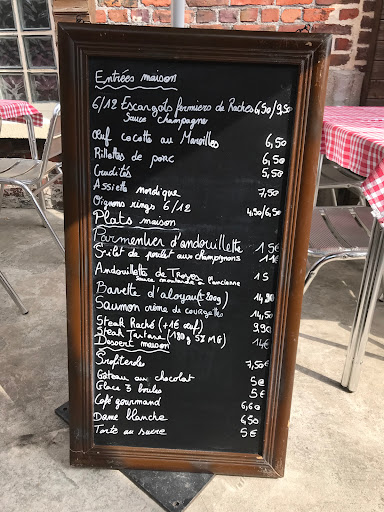 Entrées maison
6/12 Escargots fermiers de Raches 6,50/9,50
Sauce champagne
Œuf cocotte au Maroilles 6,50
Rillettes de porc 6,50
Crudités 5,50
Assiette nordique 7,50
Oignons rings 6/12 4,50/6,50
Plats maison
Parmentier d'andouillette 15€
Filet de poulet aux champignons
Andouillette de Troyes 15
Sauce moutarde à l'ancienne
Bavette d'aloyau (±200g) 14,90
Saumon crème de courgette 14,50
Steak Haché (+1€ œuf) 9,90
Steak Tartare (180g 5% MG) 14€
Dessert maison
Profiterole 7,50€
Gâteau au chocolat 5€
Glace 3 boules 5€
Café gourmand 6,60
Dame blanche 6,50
Tarte au sucre 5€